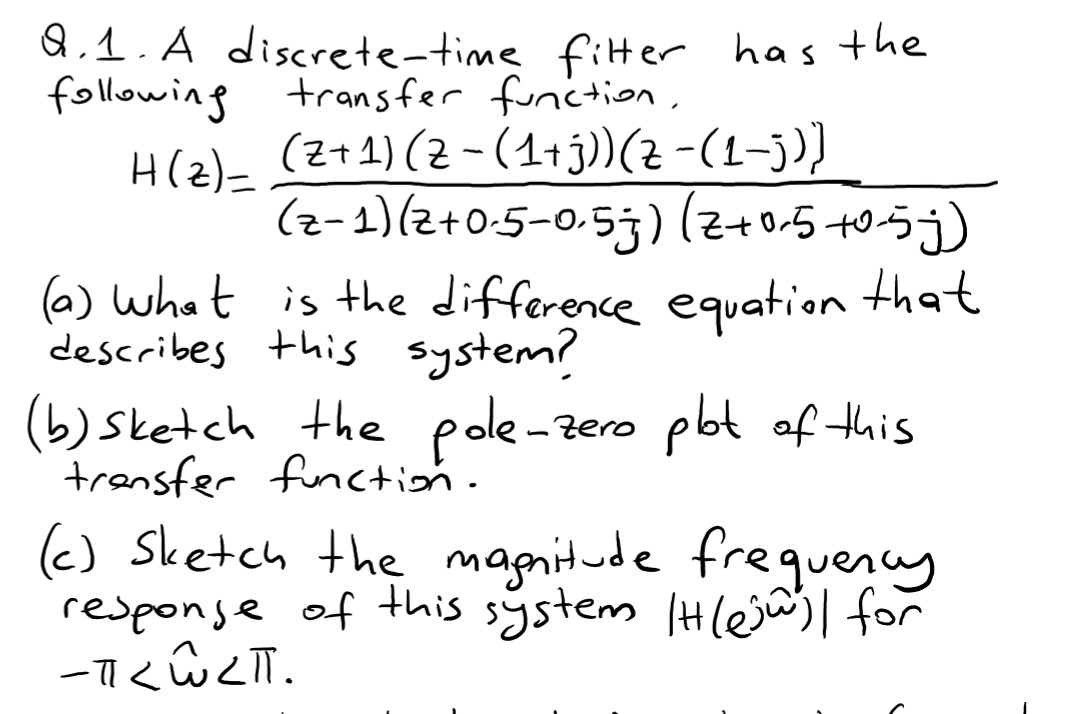 Q.1. A discrete-time filter has the
following transfer function.
H(z)= (z+1)(z-(1+j))(z-(1-j))
(z-1)(z+0.5-0.5j)(z+0.5+0.5j)
(a) What is the difference equation that
describes this system?
(b) Sketch the pole-zero plot of this
transfer function.
(c) Sketch the magnitude frequency
response of this system |H(e^jŵ)| for
-π<ŵ<π.